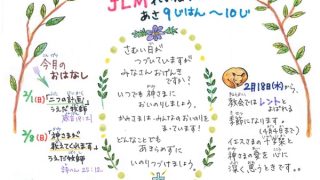 あさ9じはん～10じ
今月の
おはなし
2/1(日)「二つの計画」
うえだ 牧師
2/8(日)「神さまが
教えてくれます。」
うえだ牧師
詩へん 25:12
さむい日が
つづいていますが
みなさん おげんき
ですか？
いつでも 神さまに
おいのりしましょう。
かみさまは、みんなの おいのりを
まっています！
どんなことでも
あきらめずに
いのりつづけましょう。
2月18日(水)から、
教会では レントと
よばれる
季節になります。
(4月4日まで)
イエスさまの 十字架と
神さまの愛を 心に
深く 思うときです。